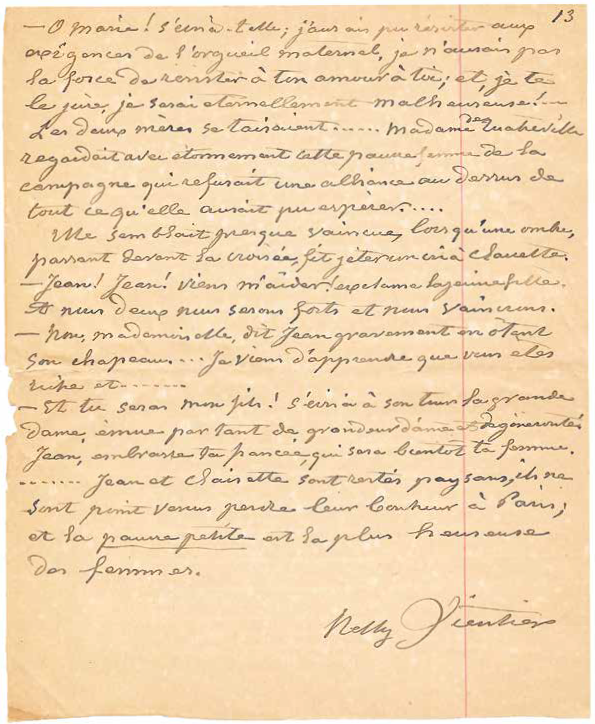 13
— O Marie! s'écria-t-elle; j'aurais pu résister aux
exigences de l'orgueil maternel, je n'aurais pas
la force de résister à ton amour à toi; et, je te
le jure, je serai éternellement malheureuse!—
Les deux mères se taisaient...... Madame de
regardait avec étonnement cette pauvre femme de la
campagne qui refusait une alliance au dessus de
tout ce qu'elle aurait pu espérer....
Elle semblait presque vaincue, lorsqu'une ombre,
passant devant la croisée, fit jeter un cri à
— Jean! Jean! viens m'aider! exclama la jeune fille.
à nous deux nous serons forts et nous vaincrons.
— Non, mademoiselle, dit Jean gravement en ôtant
son chapeau.... Je viens d'apprendre que vous êtes
riche et.......
— Et tu seras mon fils! s'écria à son tour la grande
dame, émue par tant de grandeur d'âme et de générosité.
Jean, embrasse ta fiancée, qui sera bientôt ta femme.
....... Jean et Clairette sont restés paysans, ils ne
sont point venus perdre leur bonheur à Paris;
et la pauvre petite est la plus heureuse
des femmes.
Nelly